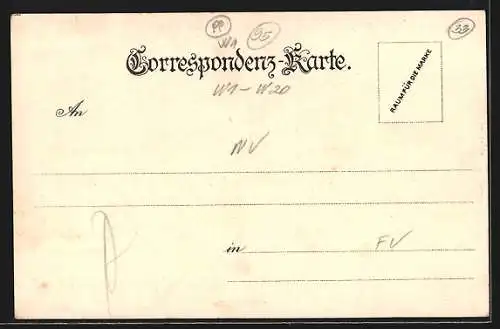 PP
W1
95
33
Correspondenz-Karte.
RAUM FÜR DIE MARKE
W1-W20
An
NV
in
FV